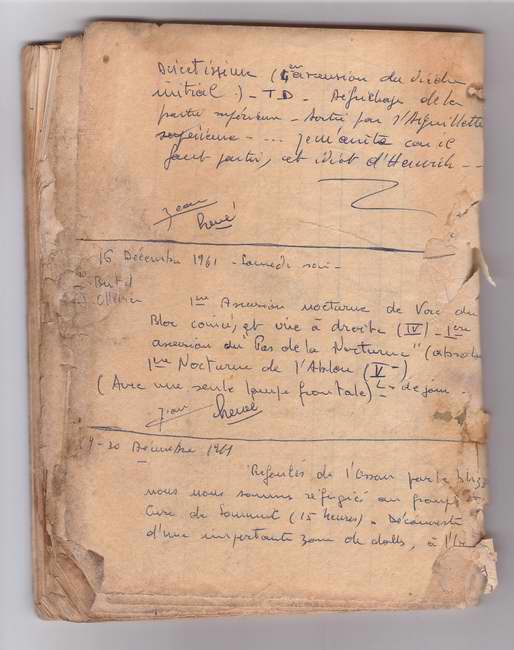 Directissime (1ère ascension du
initial.) - TD - de la
partie supérieure - Sortie par l'Aiguillette
supérieure - ... Je m'arrête car il
faut partir, cet idiot d'Henrich - -
Jean
Hervé
16 Décembre 1961 - Samedi soir -
1ère Ascension nocturne de Voie du
Bloc coincé, et vire à droite (IV) - 1ère
ascension du "Pas de la Nocturne" (absolu
1ère Nocturne de l'Ablon (V-)
(Avec une seule lampe frontale) -
Jean Hervé
- 30 Décembre 1961
Refoulés de l'Ossau par le
nous nous sommes réfugiés au groupe
Cire de Sommet (15 heures). Découverte
d'une importante zone de dalls, à